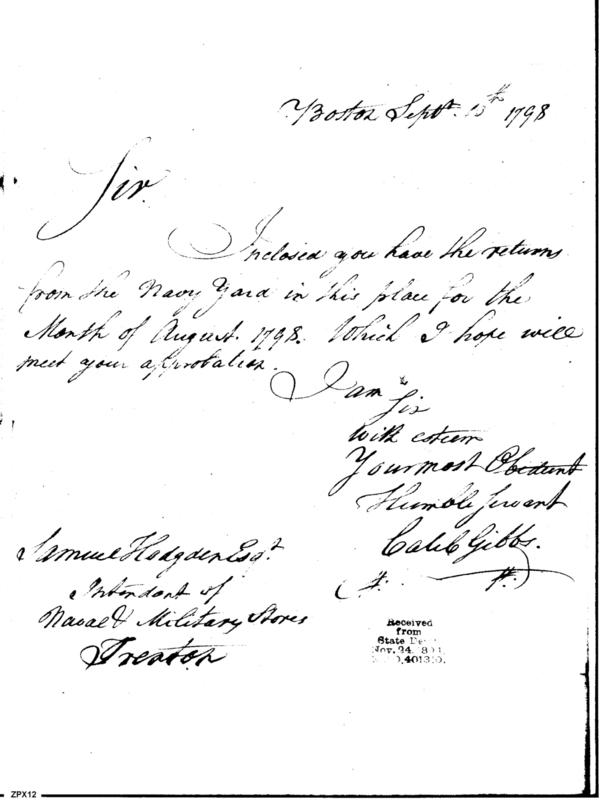 Boston Septr. 15th 1798
Sir.
Inclosed you have the returns
from the Navy Yard in this place for the
Month of August. 1798. Which I hope will
meet your approbation.
I am
Sir
with esteem
Your most Obedient
Humble Servant
Caleb Gibbs.
Samuel Hodgden Esqr.
Intendant of
Naval & Military Stores
Trenton
Received
from
State
Nov. 24.
ZPX12